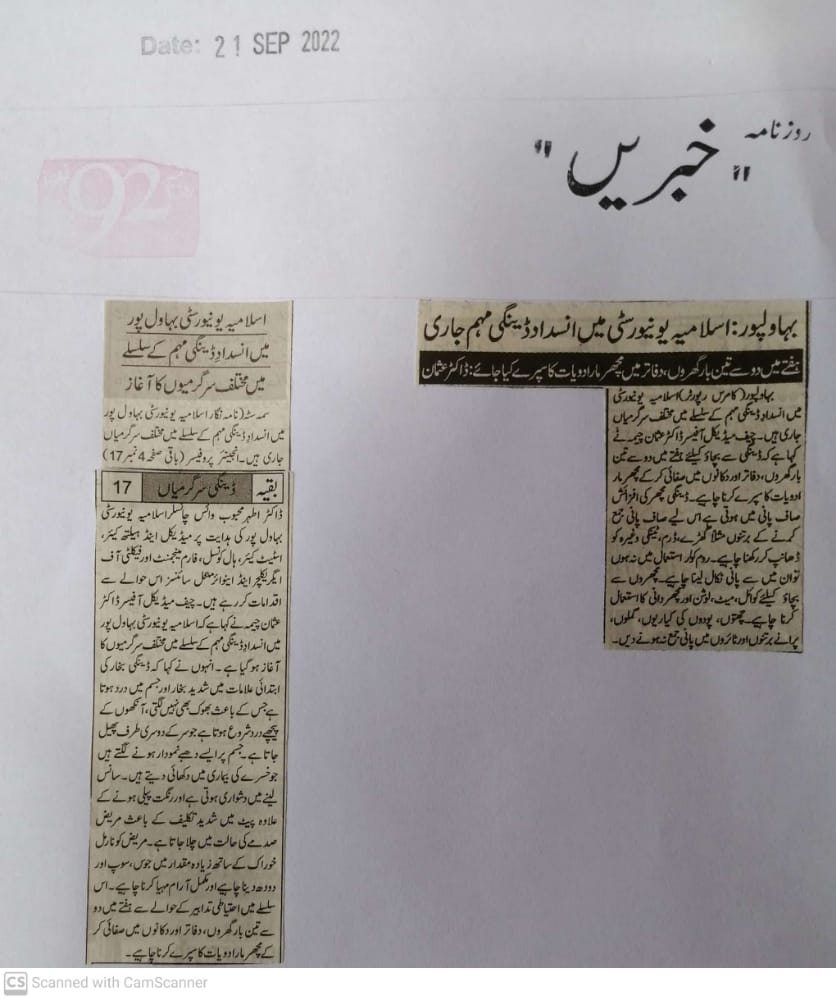 Date: 21 SEP 2022
روزنامہ
"خبریں"
92
بہاولپور: اسلامیہ یونیورسٹی میں انسداد ڈینگی مہم جاری
ہفتے میں دو سے تین بار گھروں، دفاتر میں مچھر مار ادویات کا سپرے کیا جائے: ڈاکٹر عثمان
بہاولپور (کامرس رپورٹر) اسلامیہ یونیورسٹی
میں انسداد ڈینگی مہم کے سلسلے میں مختلف سرگرمیاں
جاری ہیں۔ چیف میڈیکل آفیسر ڈاکٹر عثمان چیمہ نے
کہا ہے کہ ڈینگی سے بچاؤ کیلئے ہفتے میں دو سے تین
بار گھروں، دفاتر اور دکانوں میں صفائی کر کے مچھر مار
ادویات کا سپرے کرنا چاہیے۔ ڈینگی مچھر کی افزائش
صاف پانی میں ہوتی ہے اس لیے صاف پانی جمع
کرنے کے برتنوں مثلاً گھڑے، ڈرم، ٹینکی وغیرہ کو
ڈھانپ کر رکھنا چاہیے۔ روم کولر استعمال میں نہ ہوں
تو ان میں سے پانی نکال لینا چاہیے۔ مچھروں سے
بچاؤ کیلئے کوائل، میٹ، لوشن اور مچھر دانی کا استعمال
کرنا چاہیے۔ چھتوں، پودوں کی کیاریوں، گملوں،
پرانے برتنوں اور ٹائروں میں پانی جمع نہ ہونے دیں۔
اسلامیہ یونیورسٹی بہاول پور
میں انسدادِ ڈینگی مہم کے سلسلے
میں مختلف سرگرمیوں کا آغاز
سمہ سٹہ (نامہ نگار) اسلامیہ یونیورسٹی بہاول پور
میں انسداد ڈینگی مہم کے سلسلے میں مختلف سرگرمیاں
جاری ہیں۔ انجینئر پروفیسر (باقی صفحہ 4 نمبر 17)
بقیہ ڈینگی سرگرمیاں 17
ڈاکٹر اطہر محبوب وائس چانسلر اسلامیہ یونیورسٹی
بہاول پور کی ہدایت پر میڈیکل اینڈ ہیلتھ کیئر،
اسٹیٹ کیئر، ہال کونسل، فارم مینجمنٹ اور فیکلٹی آف
ایگریکلچر اینڈ اینوائرمنٹل سائنسز اس حوالے سے
اقدامات کر رہے ہیں۔ چیف میڈیکل آفیسر ڈاکٹر
عثمان چیمہ نے کہا ہے کہ اسلامیہ یونیورسٹی بہاول پور
میں انسداد ڈینگی مہم کے سلسلے میں مختلف سرگرمیوں کا
آغاز ہو گیا ہے۔ انہوں نے کہا کہ ڈینگی بخار کی
ابتدائی علامات میں شدید بخار اور جسم میں درد ہوتا
ہے جس کے باعث بھوک بھی نہیں لگتی، آنکھوں کے
پیچھے درد شروع ہوتا ہے جو سر کے دوسری طرف پھیل
جاتا ہے۔ جسم پر ایسے دھبے نمودار ہونے لگتے ہیں
جو خسرے کی بیماری میں دکھائی دیتے ہیں۔ سانس
لینے میں دشواری ہوتی ہے اور رنگت پیلی ہونے کے
علاوہ پیٹ میں شدید تکلیف کے باعث مریض
صدمے کی حالت میں چلا جاتا ہے۔ مریض کو نارمل
خوراک کے ساتھ زیادہ مقدار میں جوس، سوپ اور
دودھ دینا چاہیے اور مکمل آرام مہیا کرنا چاہیے۔ اس
سلسلے میں احتیاطی تدابیر کے حوالے سے ہفتے میں دو
سے تین بار گھروں، دفاتر اور دکانوں میں صفائی کر
کے مچھر مار ادویات کا سپرے کرنا چاہیے۔
CS Scanned with CamScanner